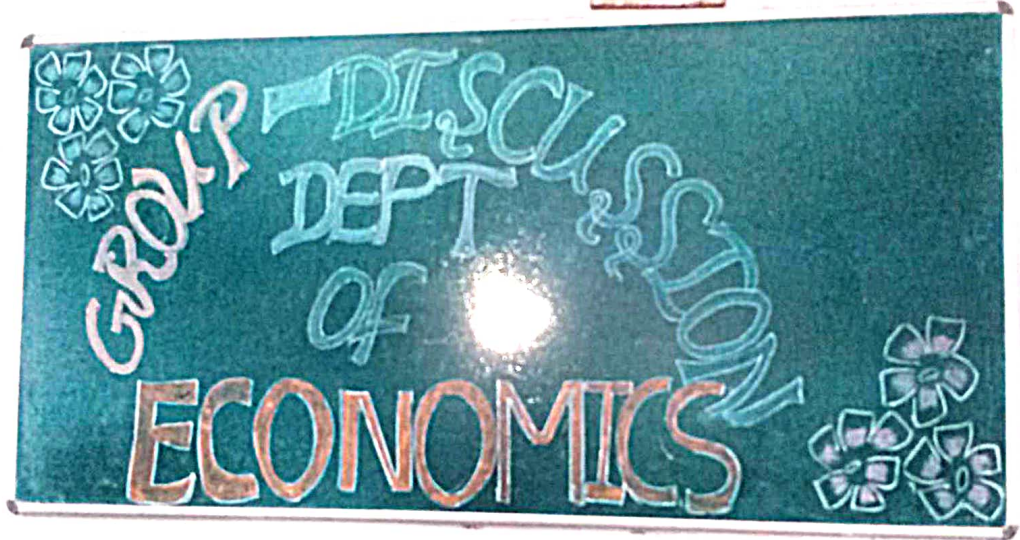 GROUP - DISCUSSION
DEPT
Of
ECONOMICS